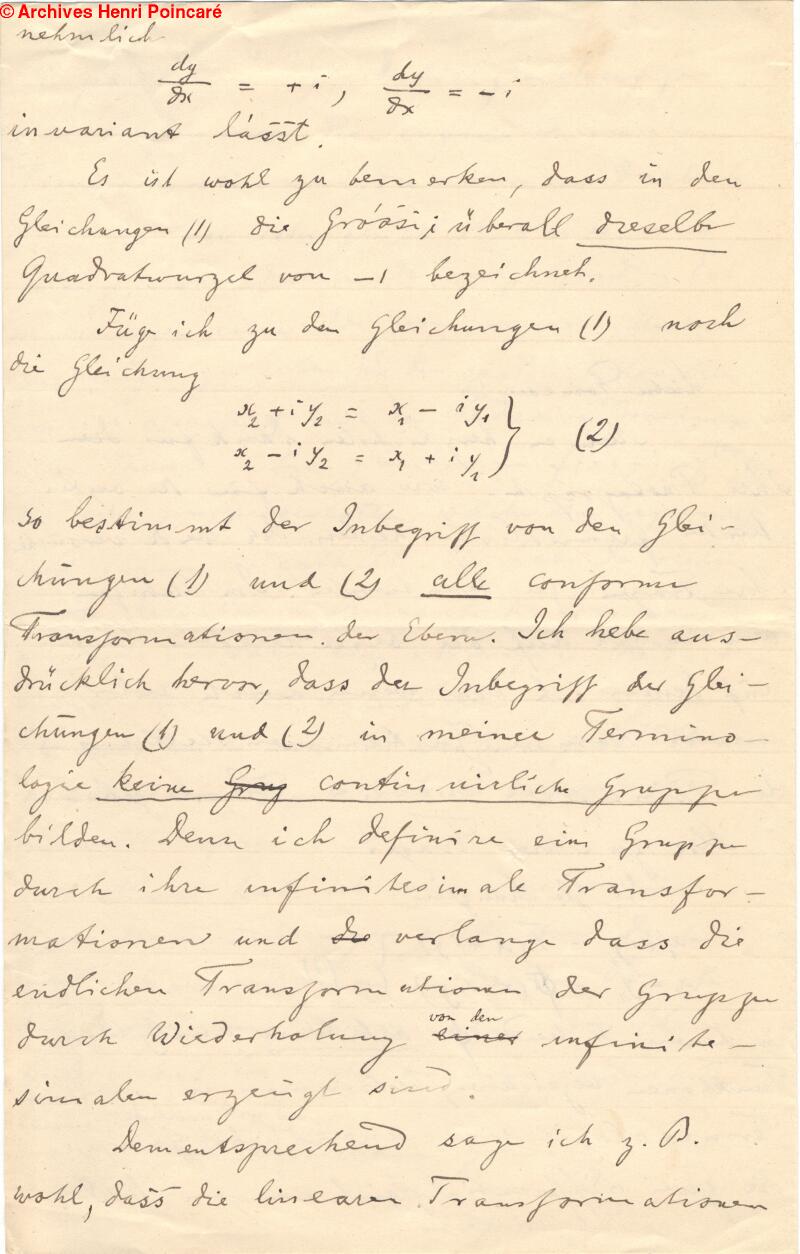 © Archives Henri Poincaré
nehmlich
dy/dx = +i, dy/dx = -i
invariant lässt.
Es ist wohl zu bemerken, dass in den
Gleichungen (1) die Grösse i überall dieselbe
Quadratwurzel von -1 bezeichnet.
Füge ich zu den Gleichungen (1) noch
die Gleichung
x₂ + i y₂ = x₁ - i y₁
x₂ - i y₂ = x₁ + i y₁ } (2)
so bestimmt der Inbegriff von den Glei-
chungen (1) und (2) alle conforme
Transformationen der Ebene. Ich hebe aus-
drücklich hervor, dass der Inbegriff der Glei-
chungen (1) und (2) in meiner Termino-
logie keine Grup continuirliche Gruppe
bilden. Denn ich definire eine Gruppe
durch ihre infinitesimale Transfor-
mationen und die verlange dass die
endlichen Transformationen der Gruppe
durch Wiederholung einer von den infinite-
simalen erzeugt sind.
Dementsprechend sage ich z. B.
wohl, dass die linearen Transformationen